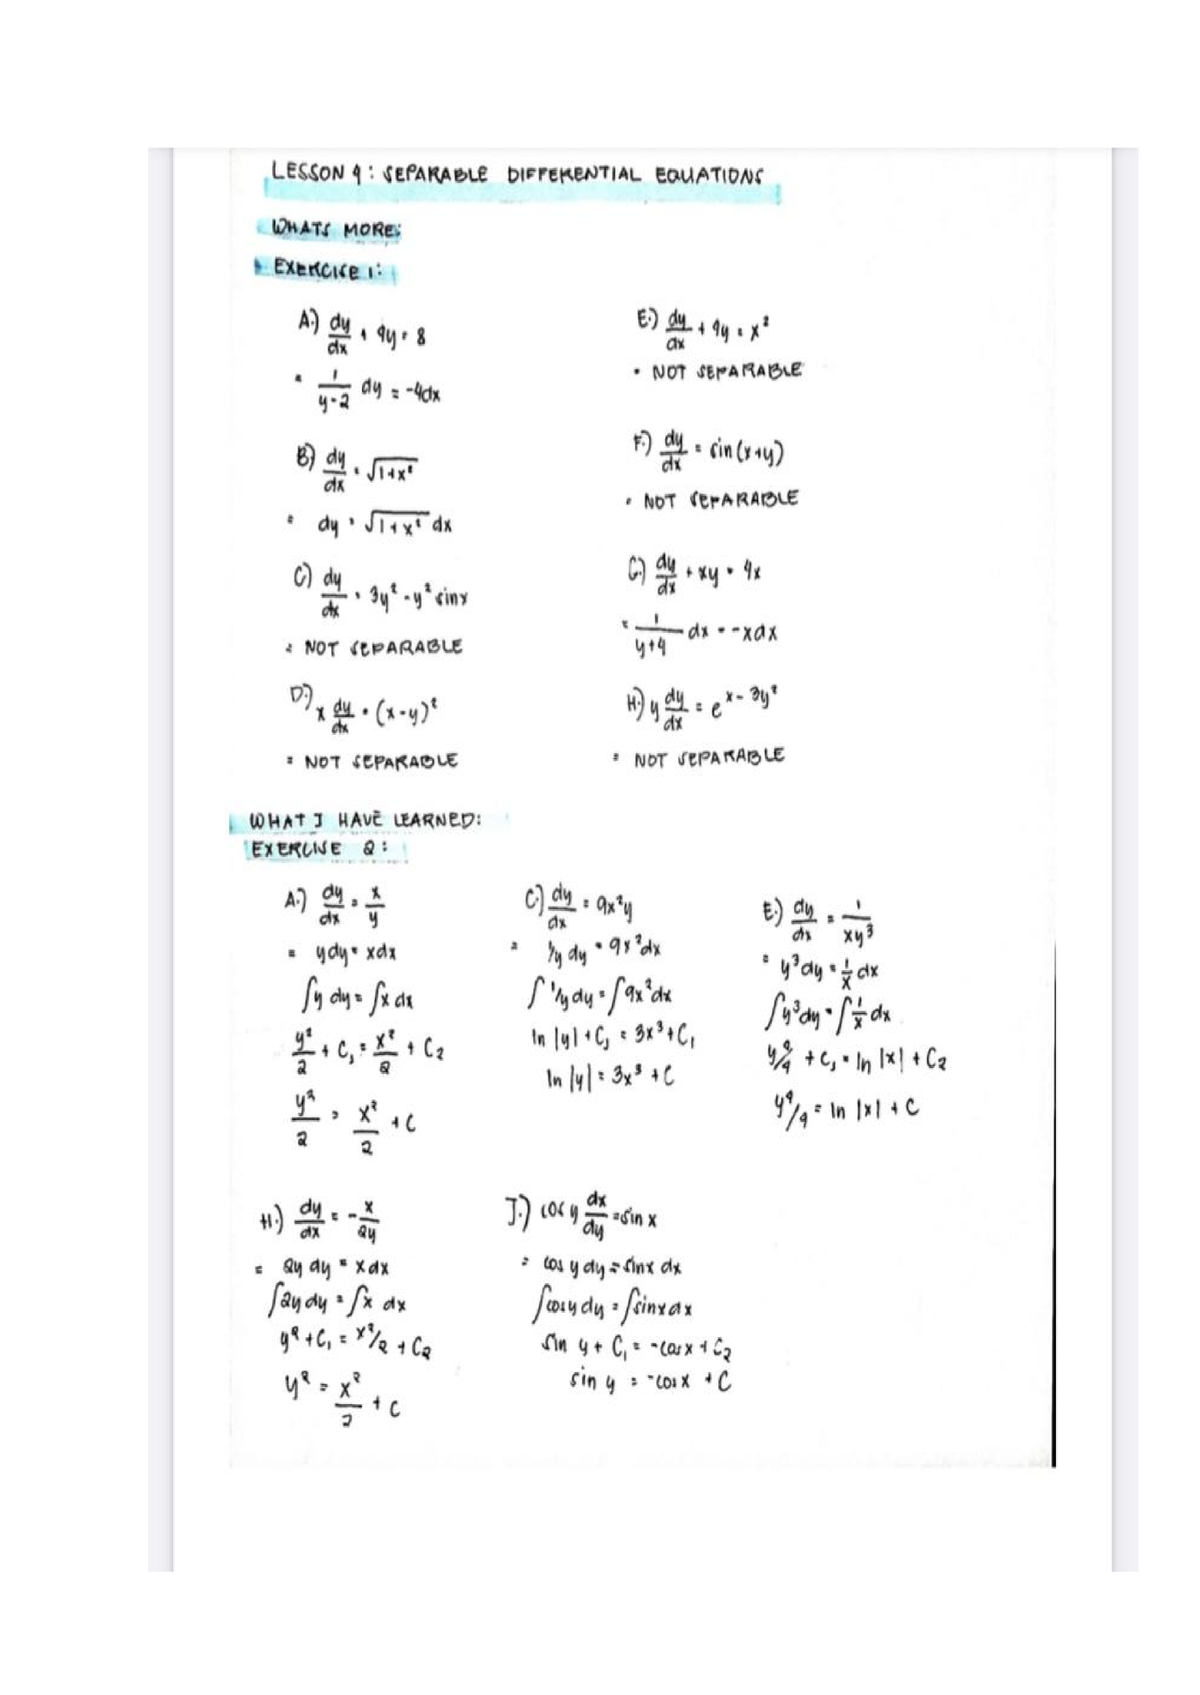 LESSON 4: SEPARABLE DIFFERENTIAL EQUATIONS
WHATS MORE:
EXERCISE 1:
A.) dy/dx + 4y = 8
= 1/(y-2) dy = -4dx
B) dy/dx = √(1+x²)
= dy = √(1+x²) dx
C) dy/dx = 3y² - y² sinx
= NOT SEPARABLE
D.) x dy/dx = (x-y)²
= NOT SEPARABLE
E.) dy/dx + 4y = x²
= NOT SEPARABLE
F.) dy/dx = sin(x+y)
= NOT SEPARABLE
G.) dy/dx + xy = 4x
= 1/(y+4) dx = -xdx
H.) y dy/dx = e^(x-3y²)
= NOT SEPARABLE
WHAT I HAVE LEARNED:
EXERCISE 2:
A.) dy/dx = x/y
= ydy = xdx
∫y dy = ∫x dx
y²/2 + C₁ = x²/2 + C₂
y²/2 = x²/2 + C
C.) dy/dx = 9x²y
= 1/y dy = 9x²dx
∫1/y dy = ∫9x²dx
ln |y| + C₁ = 3x³ + C₁
ln |y| = 3x³ + C
E.) dy/dx = 1/xy³
= y³dy = 1/x dx
∫y³dy = ∫1/x dx
y⁴/4 + C₁ = ln |x| + C₂
y⁴/4 = ln |x| + C
H.) dy/dx = -x/2y
= 2y dy = xdx
∫2y dy = ∫x dx
y² + C₁ = x²/2 + C₂
y² = x²/2 + C
J.) cos y dx/dy = sin x
= cos y dy = sinx dx
∫cosy dy = ∫sinx dx
sin y + C₁ = -cosx + C₂
sin y = -cosx + C